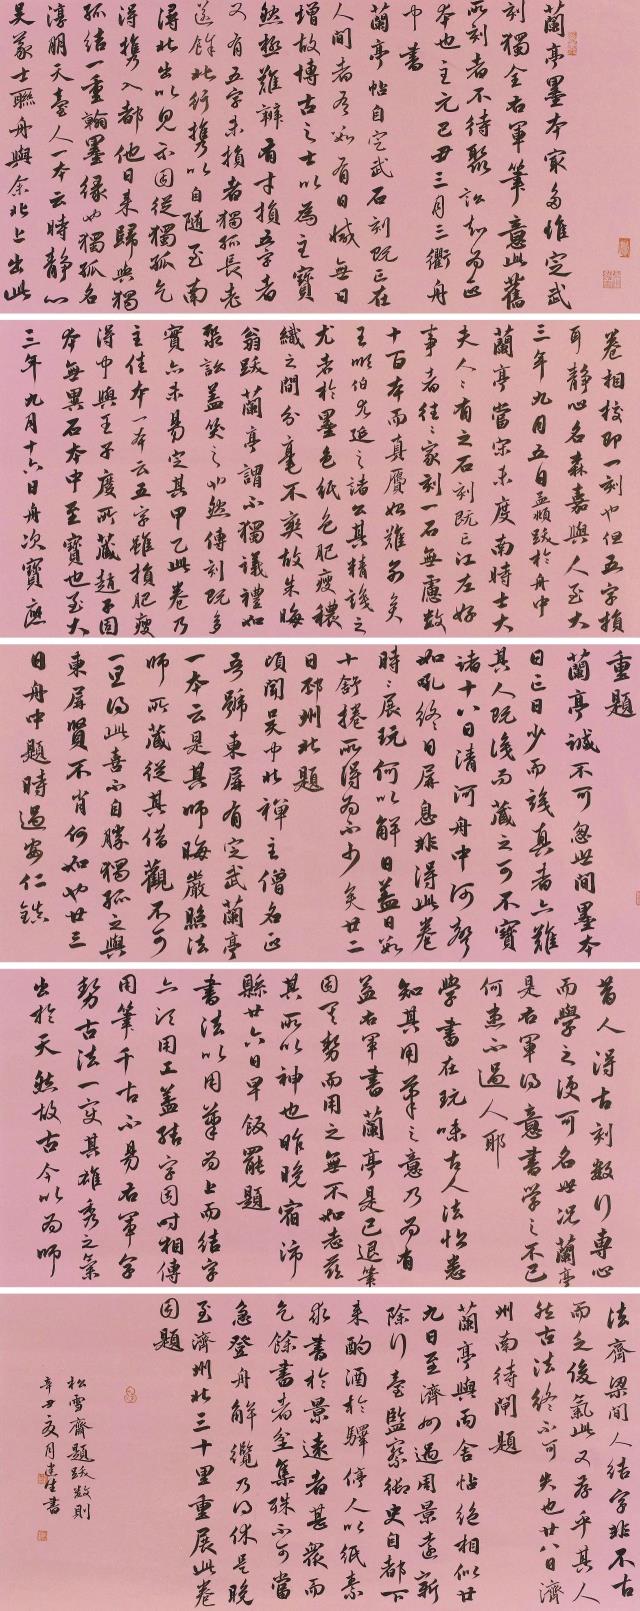 蘭亭墨本最多惟定武
刻獨全右軍筆意此舊
所刻者不待聚訟知為正
本也至元己丑三月三衢舟
中書
蘭亭帖自定武石刻既亡在
人間者有數有日減無日
增故博古之士以為至寶
然極難辨有才損五字者
又有五字未損者獨孤長老
送余北行攜以自隨至南
潯北出以見示因從獨孤乞
得攜入都他日來歸與獨
孤結一重翰墨緣也獨孤名
淳朋天臺人一本云時靜心
吳義士聯舟與余北上出此
卷相校即一刻也但五字損
耳靜心名森嘉興人至大
三年九月五日孟頫跋於舟中
蘭亭當宋未度南時士大
夫人人有之石刻既亡江左好
事者往往家刻一石無慮數
十百本而真贗始難別矣
王順伯尤延之諸公其精識之
尤者於墨色紙色肥瘦穠
纖之間分毫不爽故朱晦
翁跋蘭亭謂不獨議禮如
聚訟蓋笑之也然傳刻既多
實亦未易定其甲乙此卷乃
主佳本一本云五字雖損肥瘦
得中與王子慶所藏趙子固
本無異石本中至寶也至大
三年九月十六日舟次寶應
重題
蘭亭誠不可忽世間墨本
日亡日少而識真者亦難
其人既識而藏之可不寶
諸十八日清河舟中河聲
如吼終日屏息非得此卷
時時展玩何以解日蓋日數
十舒捲所得為不少矣廿二
日邳州北題
頃聞吳中北禪主僧名正
吾號東屏有定武蘭亭
一本云是其師晦巖照法
師所藏從其借觀不可
一旦得此喜不自勝獨孤之與
東屏賢不肖何如也廿三
日舟中題時過安仁鎮
昔人得古刻數行專心
而學之便可名世況蘭亭
是右軍得意書學之不已
何患不過人耶
學書在玩味古人法帖悉
知其用筆之意乃為有
益右軍書蘭亭是已退筆
因其勢而用之無不如志茲
其所以神也昨晚宿沛
縣廿六日早飯罷題
書法以用筆為上而結字
亦須用工蓋結字因時相傳
用筆千古不易右軍字
勢古法一變其雄秀之氣
出於天然故古今以為師
法齊梁間人結字非不古
而乏俊氣此又存乎其人
然古法終不可失也廿八日濟
州南待閘題
蘭亭與丙舍帖絕相似廿
九日至濟州遇周景遠新
除行臺監察御史自都下
來酌酒於驛停人以紙素
求書於景遠者甚衆而
乞余書者坌集殊不可當
急登舟解纜乃得休是晚
至濟州北三十里重展此卷
因題
松雪齋題跋數則
辛丑亥月建生書